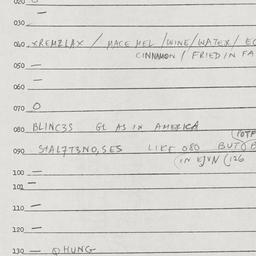 020 O
—
030
040 XREMZLAX / MACE MEL / WINE / WATEX / EG
CINNAMON / FRIED IN FA
050 —
060 —
070 O
080 BLINC3S GL AS IN AMERICA
(POTF
090 LIKE 080 BUT
(IN (126
100 —
101 —
110 —
120 —
130 — QHUNG